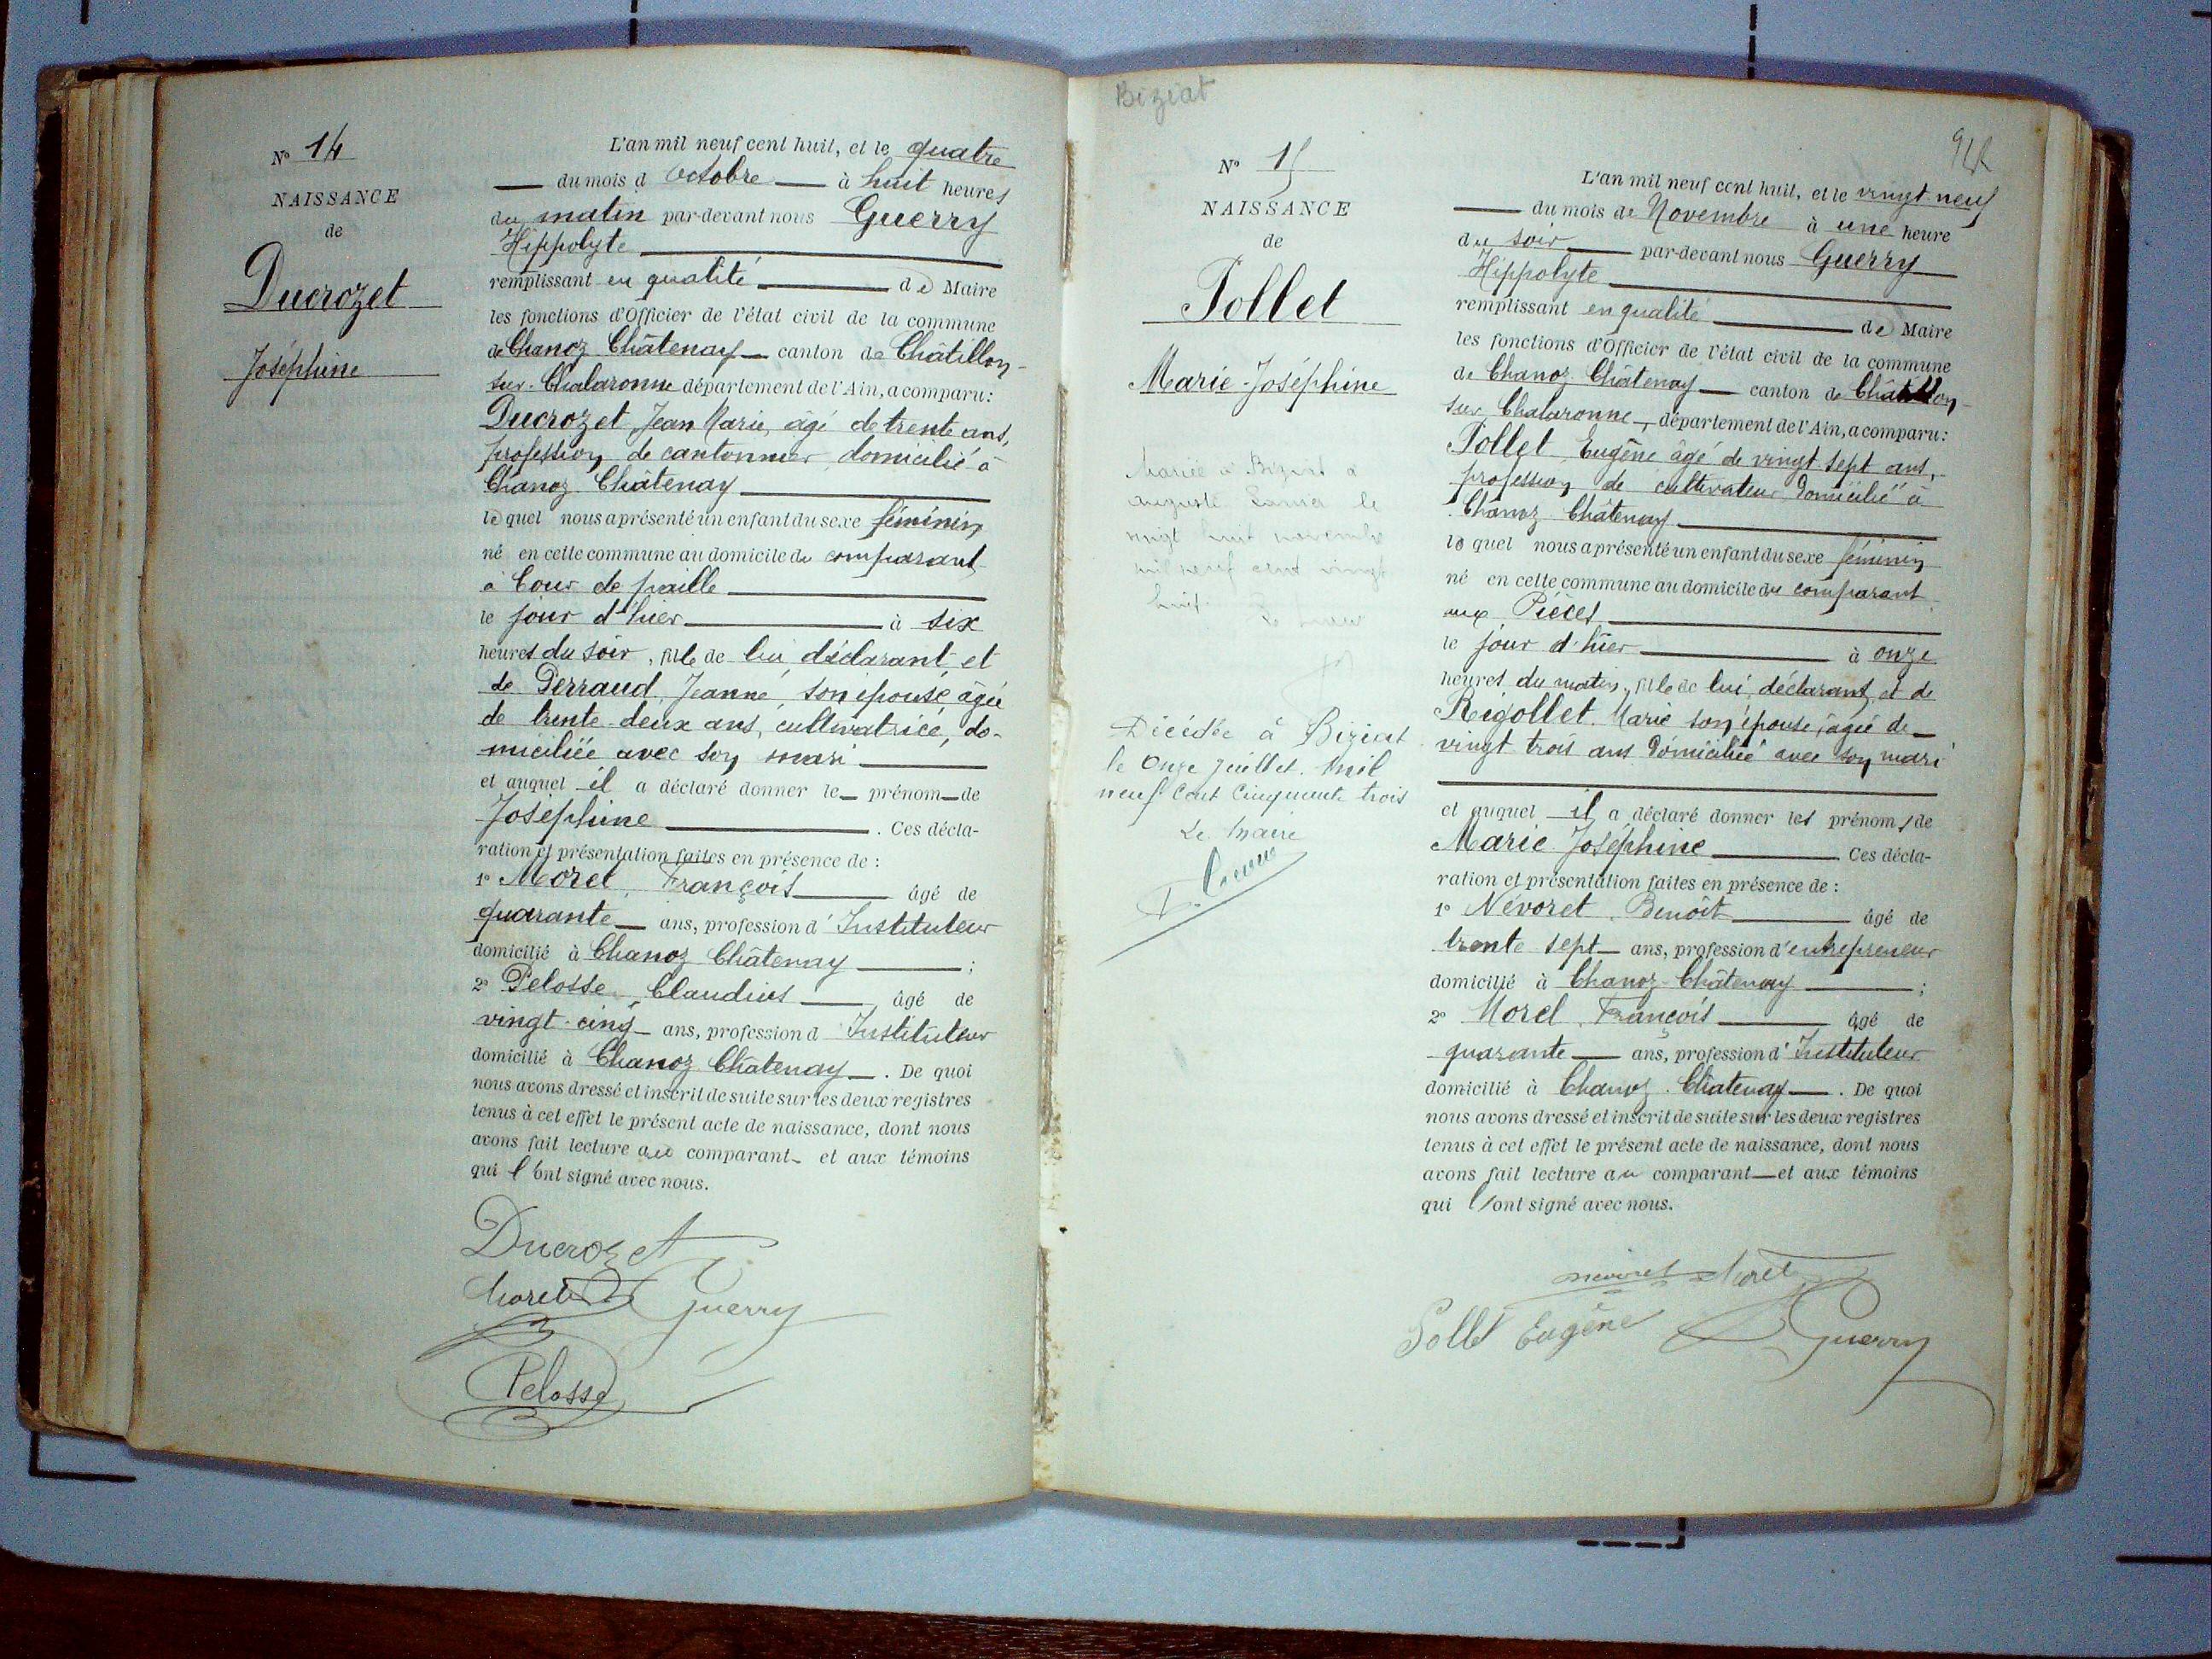 N° 14
NAISSANCE
de
Ducrozet
Joséphine
L'an mil neuf cent huit, et le quatre
du mois d octobre à huit heures
du matin par-devant nous Guerry
Hippolyte
remplissant en qualité de Maire
les fonctions d'Officier de l'état civil de la commune
de Chanoz Châtenay canton de Châtillon-
sur-Chalaronne département de l'Ain, a comparu:
Ducrozet Jean Marie, âgé de trente ans,
profession de cantonnier, domicilié à
Chanoz Châtenay
lequel nous a présenté un enfant du sexe féminin
né en cette commune au domicile du comparant
à Cour de paille
le jour d'hier à six
heures du soir, fille de lui déclarant et
de Perraud Jeanne, son épouse âgée
de trente-deux ans, cultivatrice, do-
miciliée avec son mari
et auquel il a déclaré donner le prénom de
Joséphine. Ces décla-
ration et présentation faites en présence de :
1° Morel, François âgé de
quarante ans, profession d'Instituteur
domicilié à Chanoz Châtenay ;
2° Pelosse, Claudius âgé de
vingt-cinq ans, profession d Instituteur
domicilié à Chanoz Châtenay. De quoi
nous avons dressé et inscrit de suite sur les deux registres
tenus à cet effet le présent acte de naissance, dont nous
avons fait lecture au comparant et aux témoins
qui l'ont signé avec nous.
Ducrozet
Morel Guerry
Pelosse
Biziat
N° 15
NAISSANCE
de
Pollet
Marie-Joséphine
Mariée à Biziat à
Auguste le
vingt huit novembre
mil neuf cent vingt
huit.
Décédée à Biziat
le Onze juillet. mil
neuf Cent Cinquante trois
Le Maire
L'an mil neuf cent huit, et le vingt-neuf
du mois de Novembre à une heure
du soir par-devant nous Guerry
Hippolyte
remplissant en qualité de Maire
les fonctions d'Officier de l'état civil de la commune
de Chanoz Châtenay canton de Châtillon-
sur Chalaronne, département de l'Ain, a comparu:
Pollet Eugène âgé de vingt sept ans,
profession de cultivateur domicilié à
Chanoz Châtenay
lequel nous a présenté un enfant du sexe féminin
né en cette commune au domicile du comparant
aux Pièces
le jour d'hier à onze
heures du matin, fille de lui, déclarant et de
Rigollet Marie son épouse, âgée de
vingt trois ans domiciliée avec son mari
et auquel il a déclaré donner les prénoms de
Marie Joséphine Ces décla-
ration et présentation faites en présence de :
1° Névoret, Benoît âgé de
trente sept ans, profession d'entrepreneur
domicilié à Chanoz-Châtenay ;
2° Morel, François âgé de
quarante ans, profession d'Instituteur
domicilié à Chanoz-Châtenay. De quoi
nous avons dressé et inscrit de suite sur les deux registres
tenus à cet effet le présent acte de naissance, dont nous
avons fait lecture au comparant et aux témoins
qui l'ont signé avec nous.
Névoret Morel
Pollet Eugène Guerry